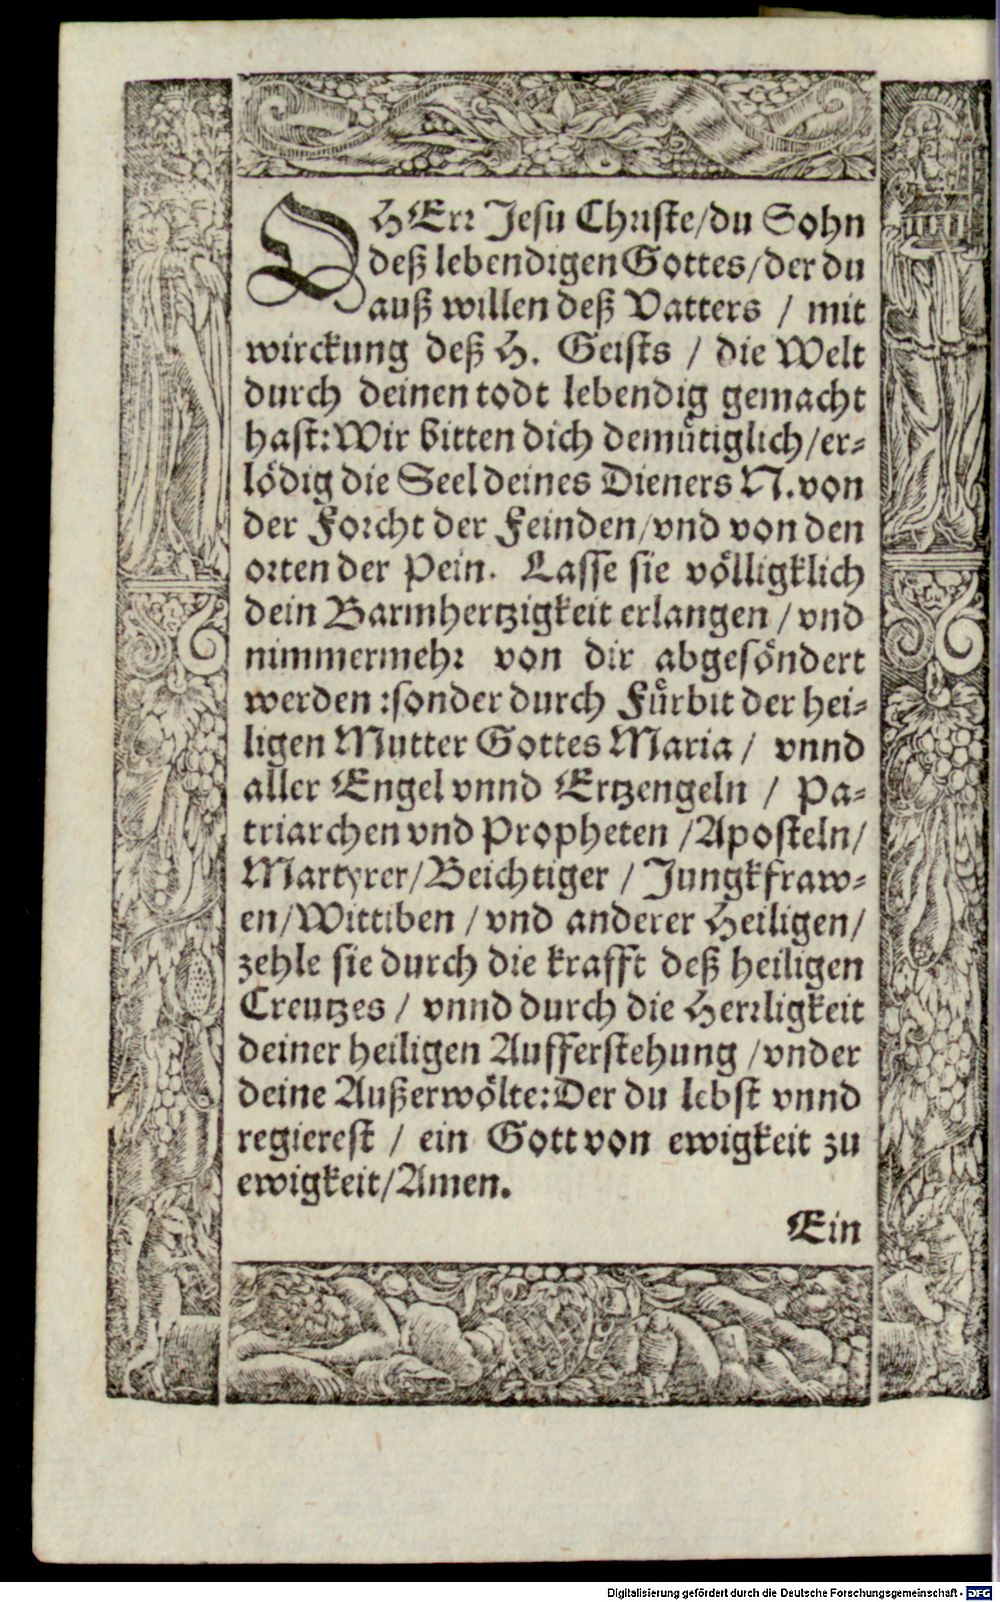 O HErr Jesu Christe/du Sohn
deß lebendigen Gottes/der du
auß willen deß Vatters / mit
wirckung deß H. Geists / die Welt
durch deinen todt lebendig gemacht
hast: Wir bitten dich demuͤtiglich/er-
loͤdig die Seel deines Dieners N. von
der Forcht der Feinden/vnd von den
orten der Pein. Lasse sie voͤlligklich
dein Barmhertzigkeit erlangen / vnd
nimmermehr von dir abgesoͤndert
werden :sonder durch Fuͤrbit der hei-
ligen Mutter Gottes Maria / vnnd
aller Engel vnnd Ertzengeln / Pa-
triarchen vnd Propheten /Aposteln/
Martyrer/Beichtiger / Jungkfraw-
en/Wittiben / vnd anderer Heiligen/
zehle sie durch die krafft deß heiligen
Creutzes / vnnd durch die Herrligkeit
deiner heiligen Aufferstehung /vnder
deine Außerwoͤlte: Der du lebst vnnd
regierest / ein Gott von ewigkeit zu
ewigkeit/Amen.
Ein
Digitalisierung gefördert durch die Deutsche Forschungsgemeinschaft - DFG